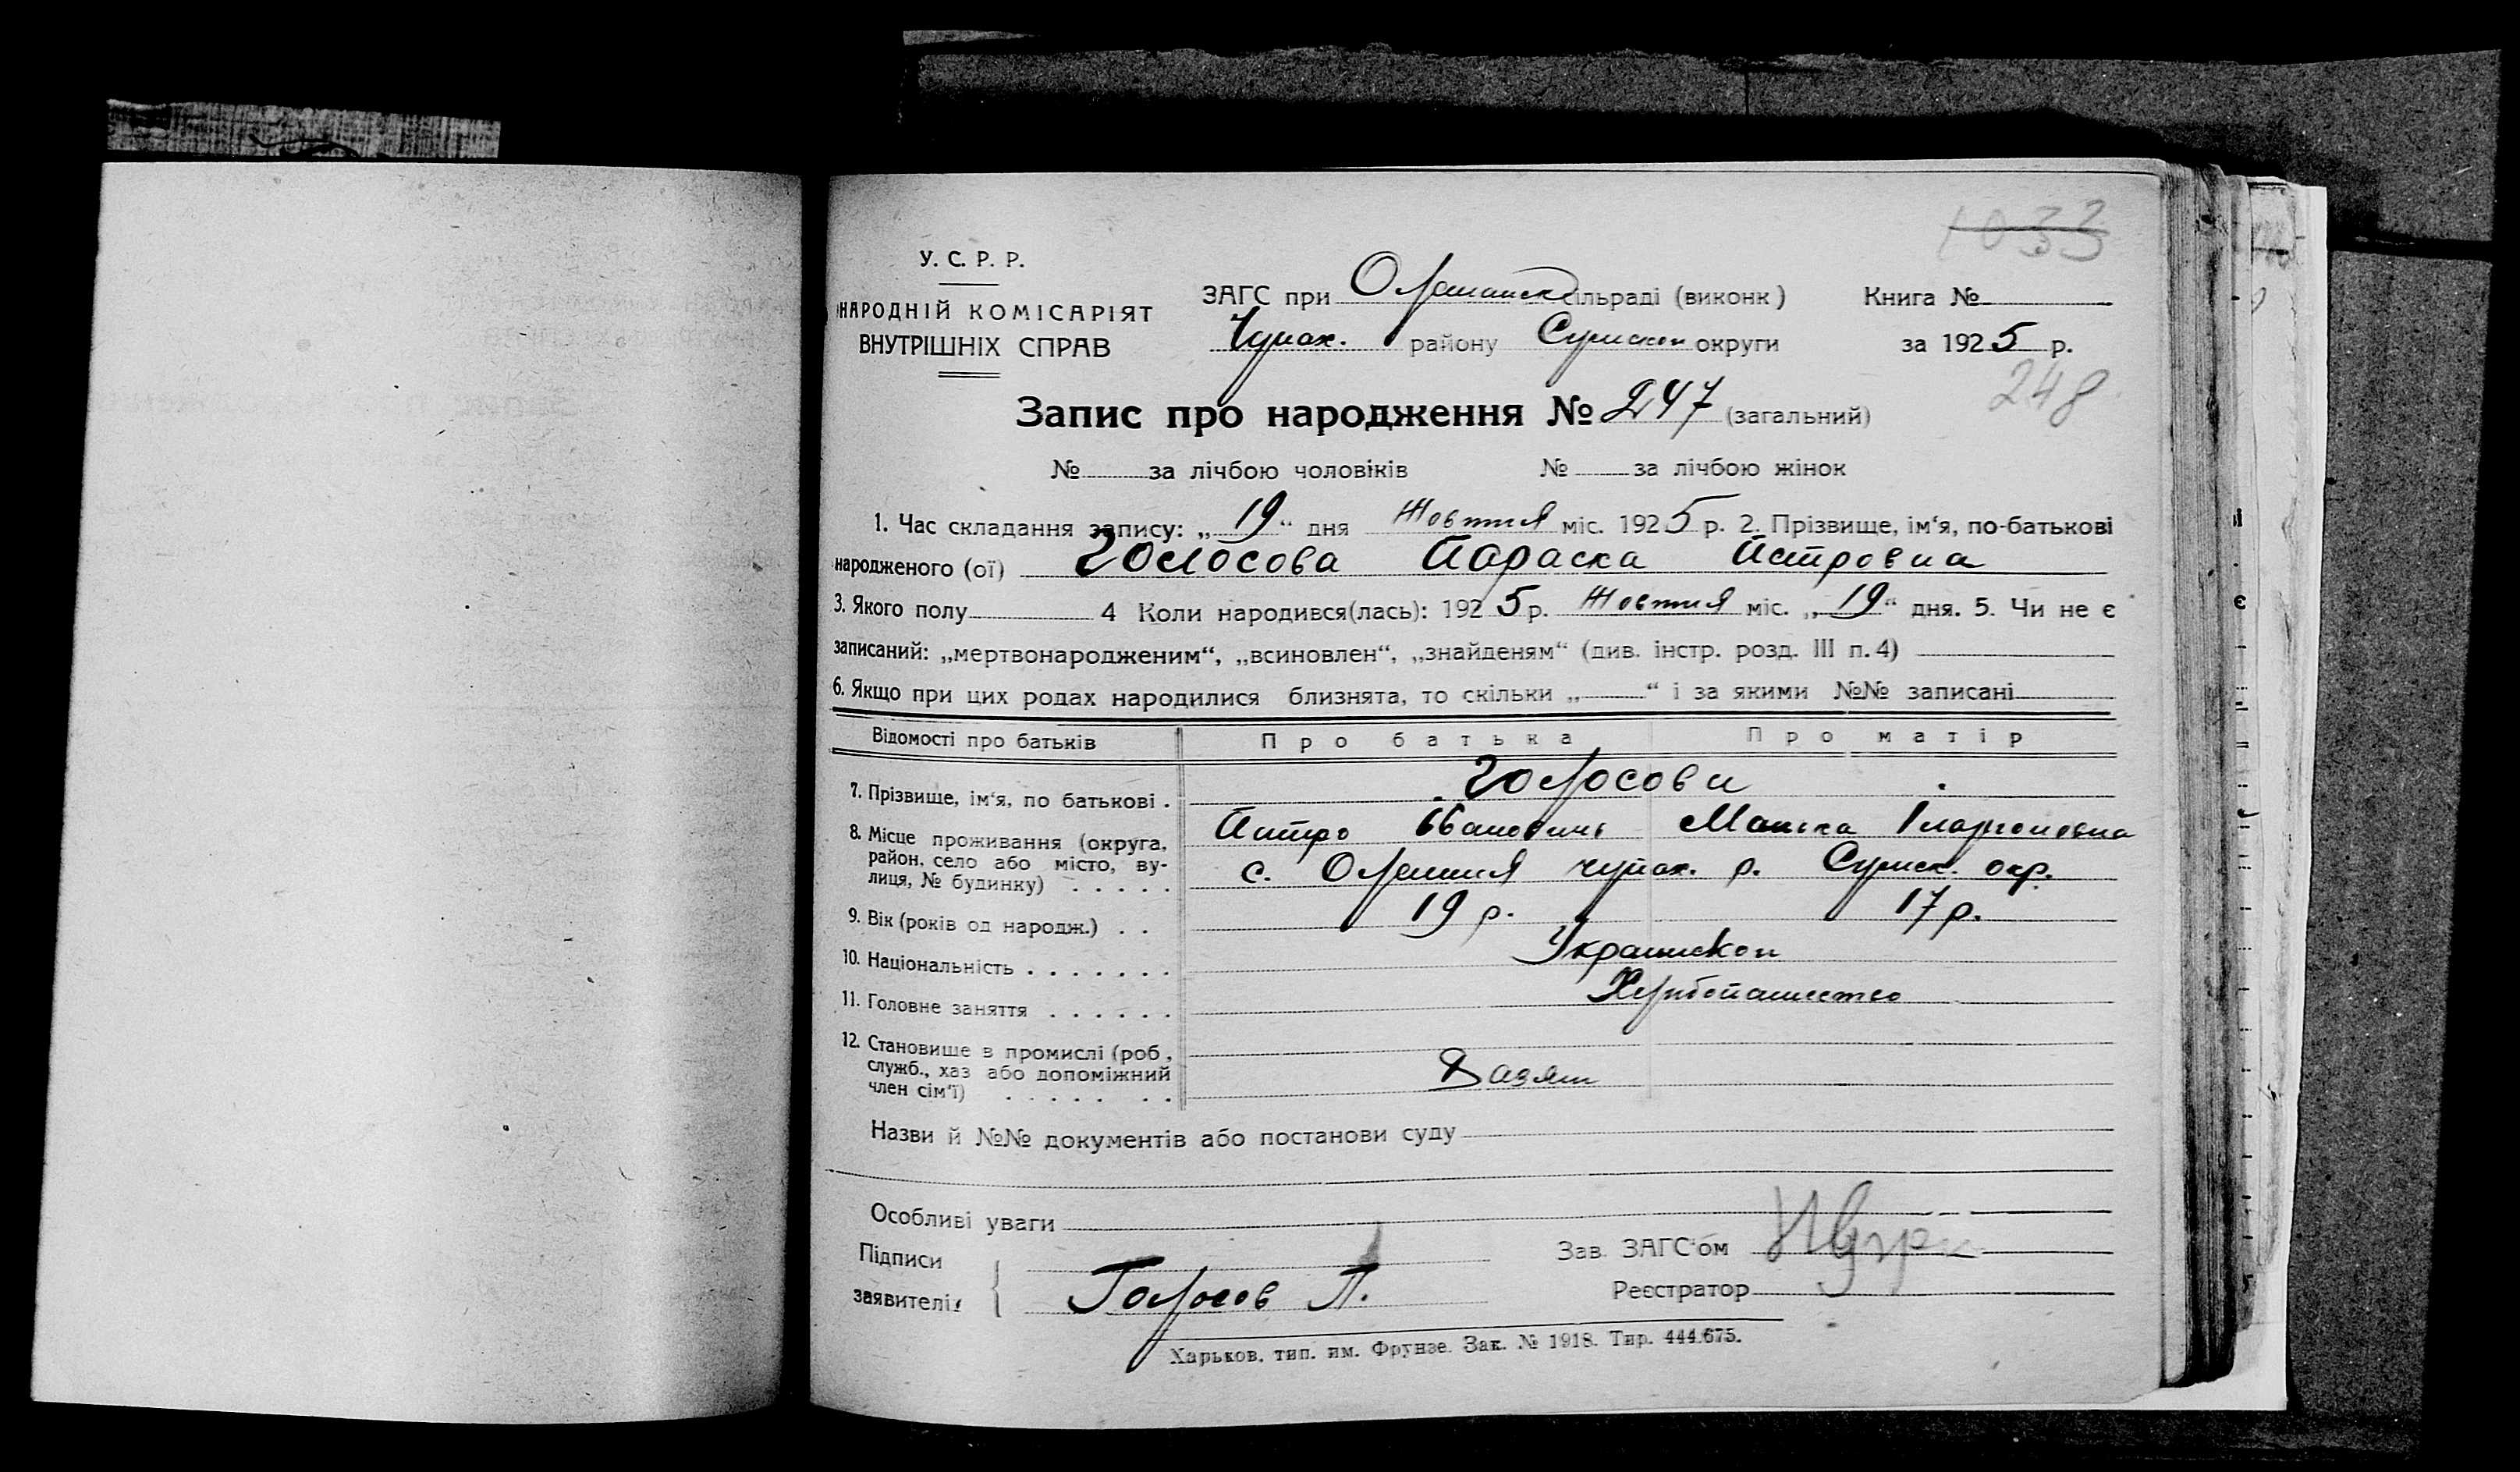 1033
У. С. Р. Р.
НАРОДНІЙ КОМІСАРІЯТ
ВНУТРІШНІХ СПРАВ
ЗАГС при Олешанск сільраді (виконк) Книга №
Чупах. району Сумской округи за 1925 р.
248
Запис про народження № 247 (загальний)
№ за лічбою чоловіків № за лічбою жінок
1. Час складання запису: „19“ дня Жовтня міс. 1925 р. 2. Прізвище, ім‘я, по-батькові
народженого (ої) Голосова Параска Петровна
3. Якого полу 4 Коли народився(лась): 1925 р. Жовтня міс. „19“ дня. 5. Чи не є
записаний: „мертвонародженим“, „всиновлен“, „знайденям“ (див. інстр. розд. III п. 4)
6. Якщо при цих родах народилися близнята, то скільки „ “ і за якими №№ записані
Відомості про батьків Про батька Про матір
7. Прізвище, ім‘я, по батькові . Голосови
Петро Иванович
8. Місце проживання (округа, район, село або місто, вулиця, № будинку) . . . . . с. Олешня чупах. р. Сумск. окр.
9. Вік (років од народж.) . . 19 р. 17 р.
10. Національність . . . . . . .
11. Головне заняття . . . . . . Хлібопашество
12. Становище в промислі (роб.,
служб., хаз або допоміжний
член сім‘ї) . . . . . . .
Назви й №№ документів або постанови суду
Особливі уваги
Підписи
заявителів Голосов П.
Зав. ЗАГС‘ом
Реєстратор
Харьков, тип. им. Фрунзе. Зак. № 1918. Тир. 444.675.